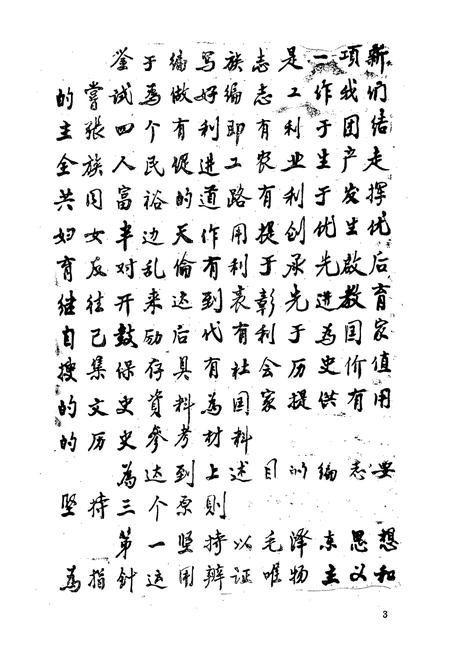 鉴于编写族志是一项新
的尝试為做好编志工作我们
主张四个有利即有利于团结
全族人民促进工农业生产走
共同富裕的道路有利于发挥
妇女半边天作用提创优生优
育反对乱伦有利于承先启后
继往开来达到表彰先进教育
自己鼓励后代有利于為国家
搜集保存具有社会历史价值
的文史資料為国家提供有用
的历史參考材料
為达到上述目的编志要
坚持三个原則
第一坚持以毛泽东思想
為指针运用辨证唯物主义和
3